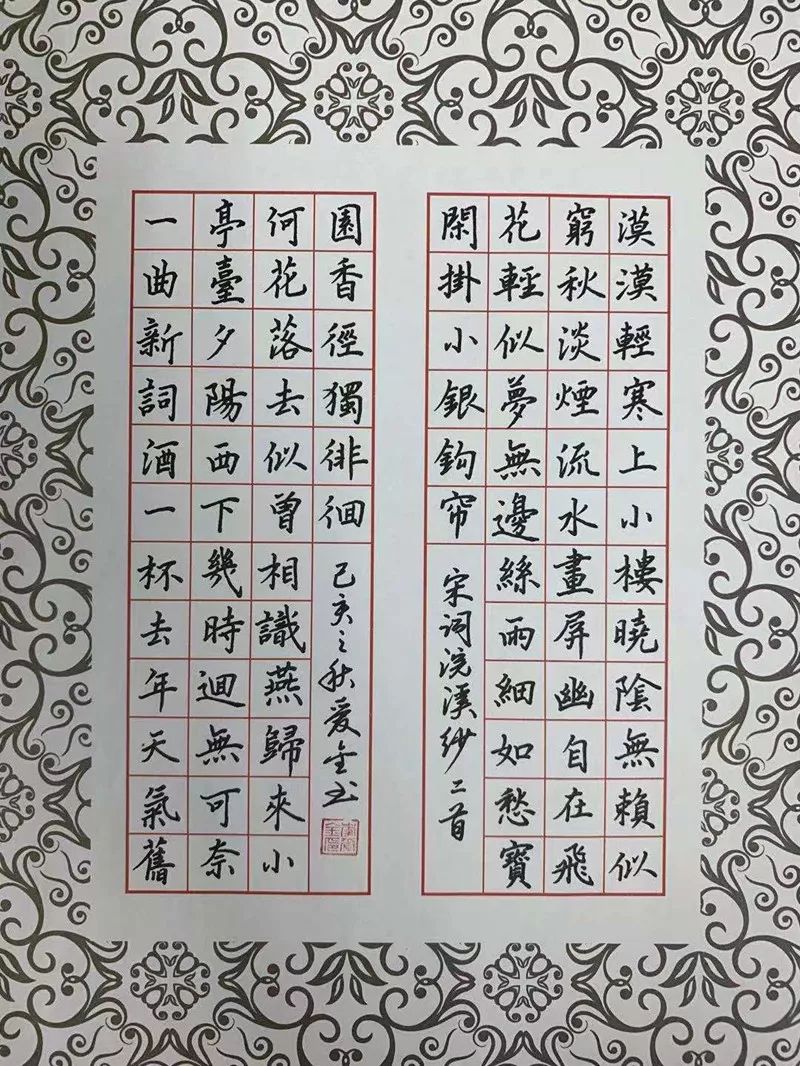 漠漠輕寒上小樓曉陰無賴似
窮秋淡煙流水畫屏幽自在飛
花輕似夢無邊絲雨細如愁寶
閑掛小銀鈎帘
宋词浣溪纱二首
一曲新詞酒一杯去年天氣舊
亭臺夕陽西下幾時迴無可奈
何花落去似曾相識燕歸來小
園香徑獨徘徊
己亥之秋爱金书